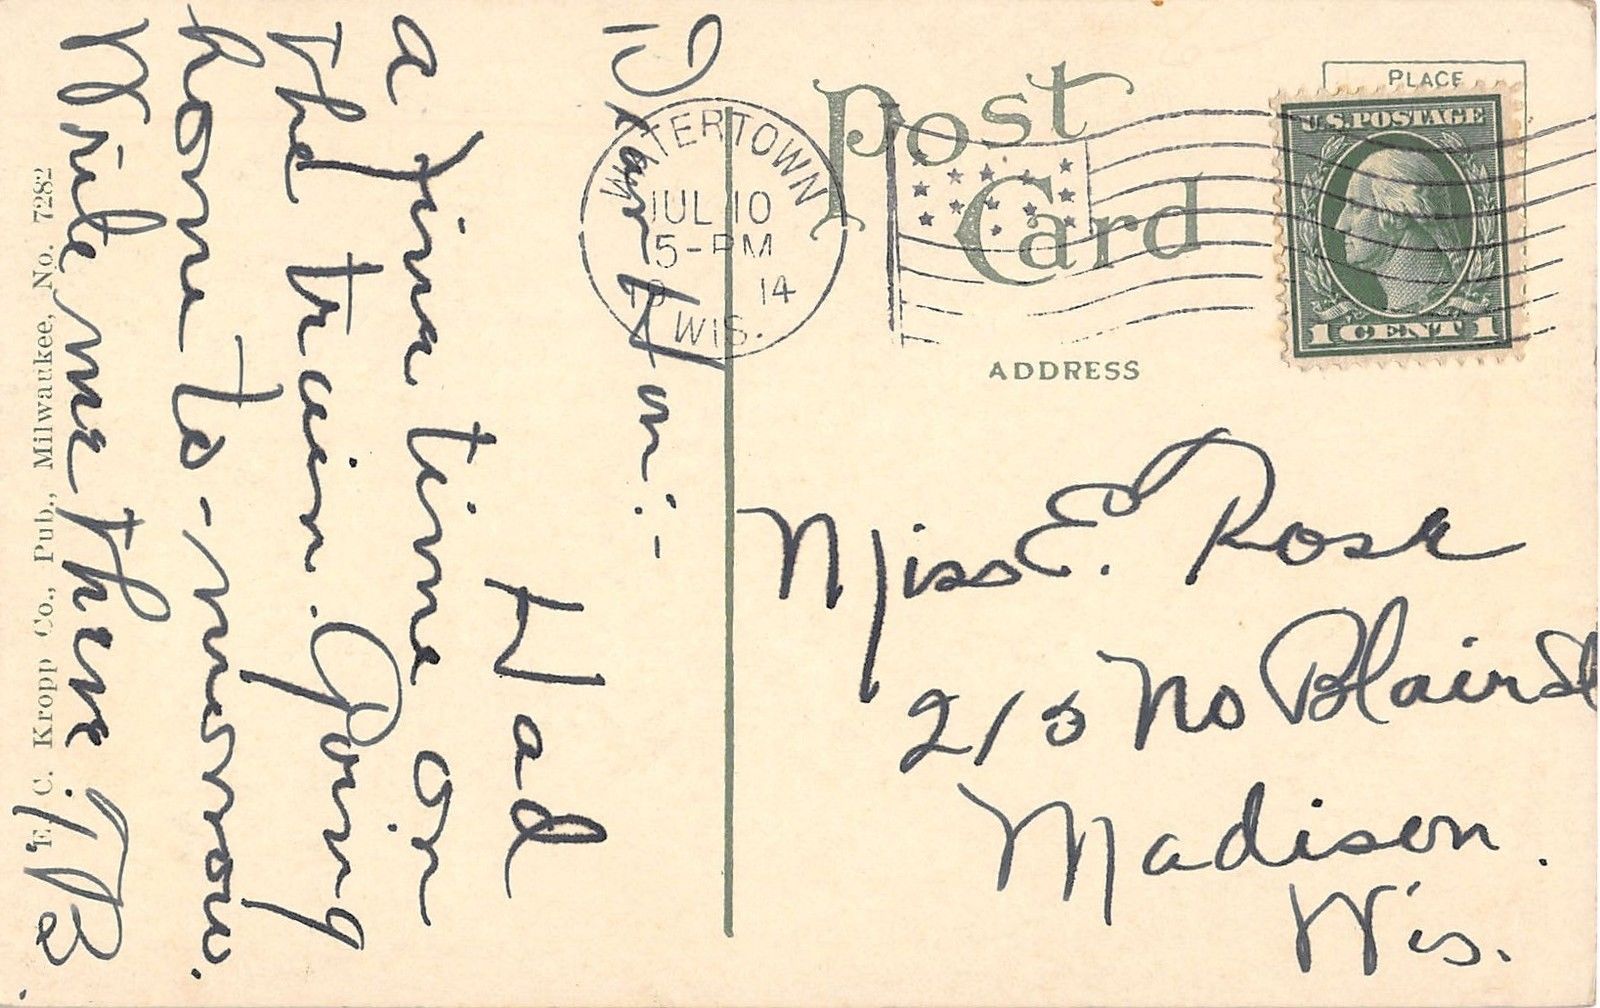 Dear Hon:-
Had
a fine time on
the train. Going
home to-morrow.
Write me there.
E. C. Kropp Co., Pub., Milwaukee, No. 7282
WATERTOWN
JUL 10
5-PM
14
WIS.
Post
Card
PLACE
U.S.POSTAGE
1 CENT 1
ADDRESS
Miss E. Rose
215 No Blair St
Madison.
Wis.